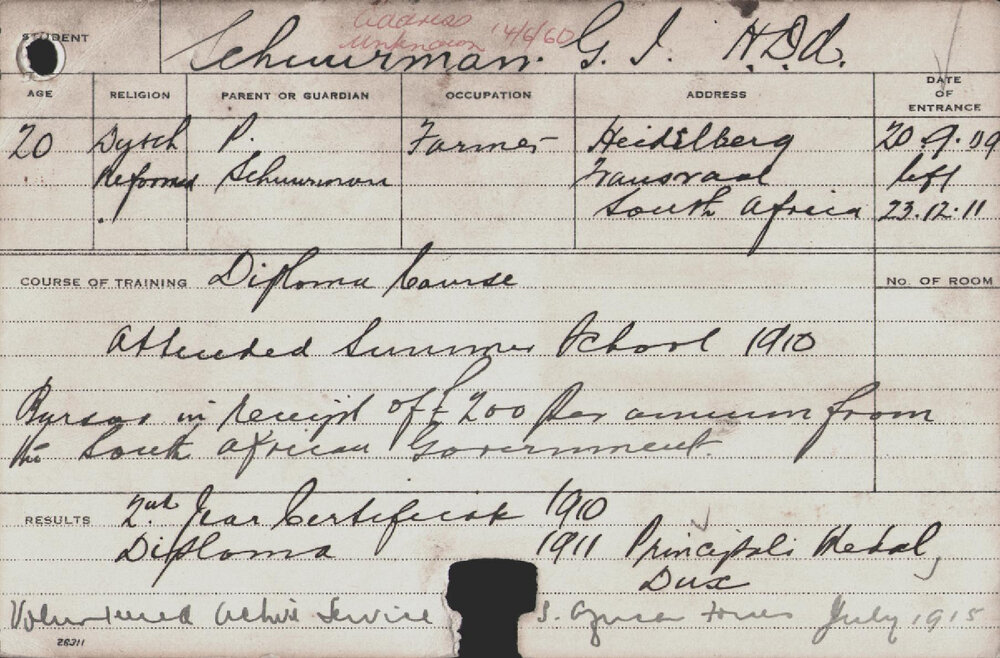 Address
Unknown 14/6/60
STUDENT Schuurman. G. J. H.D.d.
AGE RELIGION PARENT OR GUARDIAN OCCUPATION ADDRESS DATE OF ENTRANCE
20 Dutch P. Farmer Heidelberg 20.9.09
Reformed Schuurman Transvaal left
South Africa 23.12.11
COURSE OF TRAINING Diploma Course No. OF ROOM
Attended Summer School 1910
Bursar in receipt of £200 per annum from
the South African Government.
RESULTS 2nd Year Certificate 1910
Diploma 1911 Principals Medal,
Dux
Volunteered Active Service S. African Forces July 1915
26311